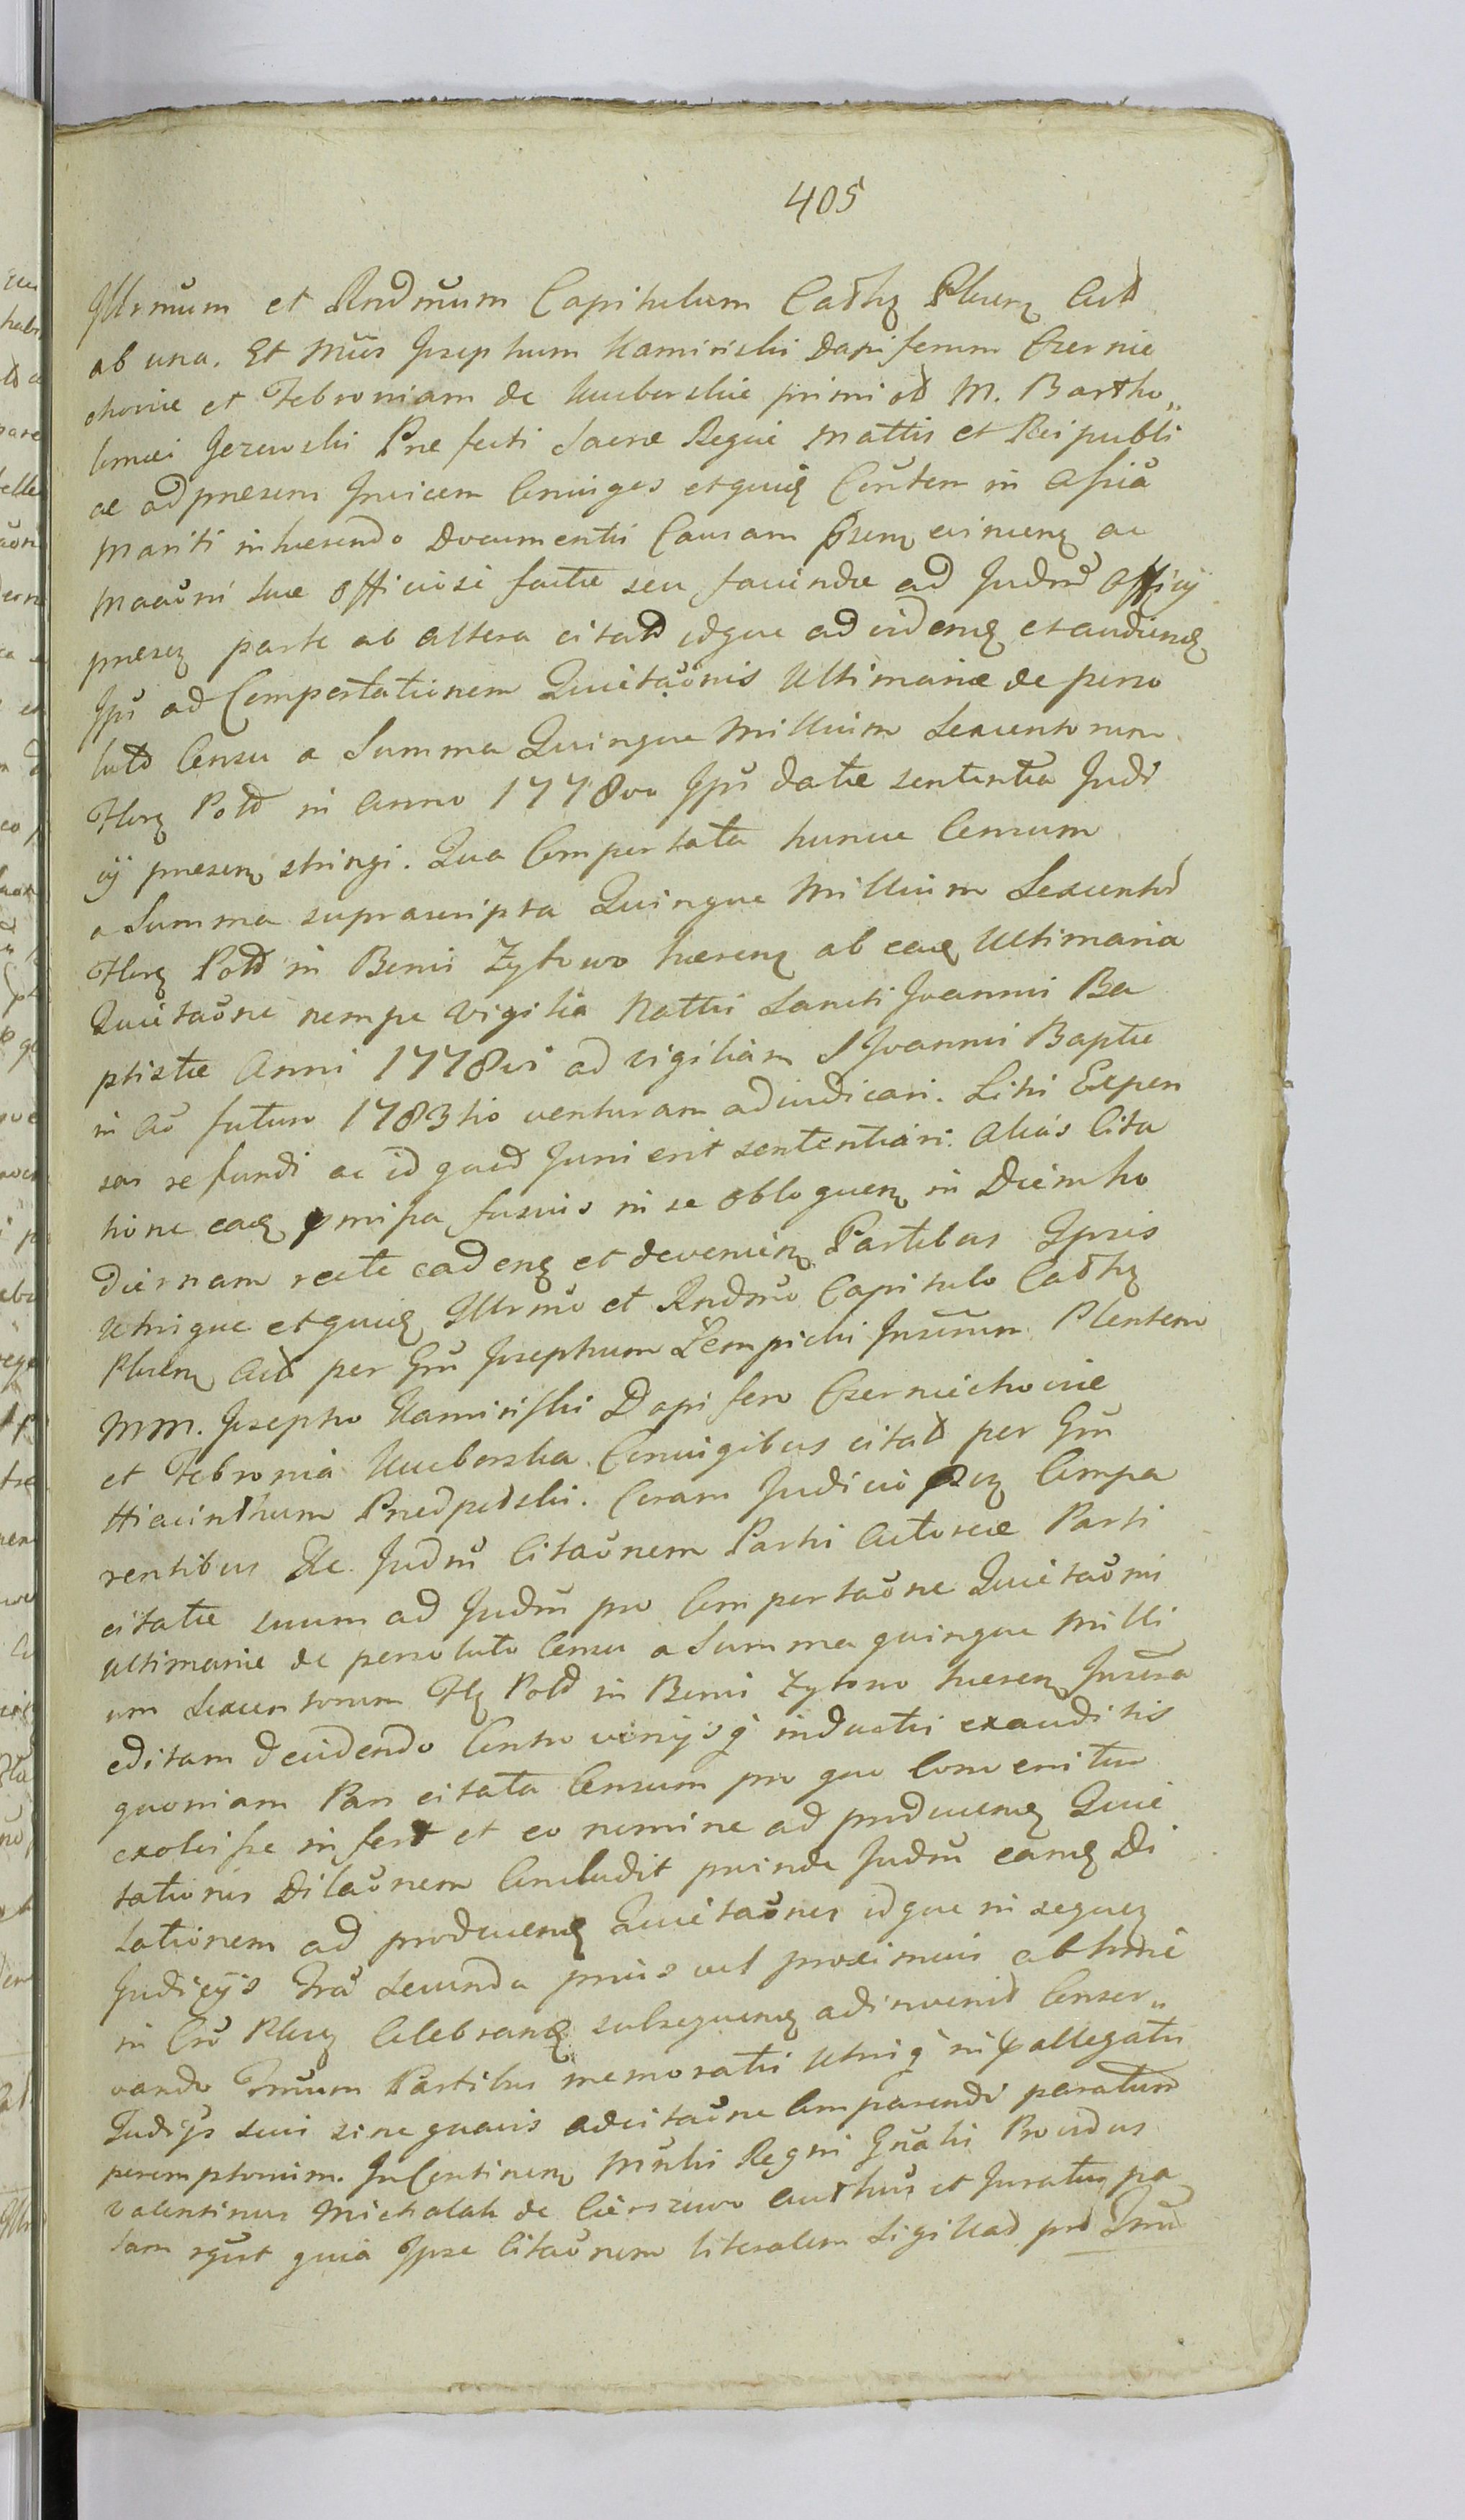 405
Illrmum et Rndmum Capitulum Cathz Plucen Actd
ab una. Et Mũs Josephum Kaminski Dapiferum Czernie
choviæ et Febroniam de Kucborskie primi ol M. Bartho„
lomæi Jezewski Præfecti Sacræ Regiæ Mattis et Reipubli
cæ ad præsens Invicem Conjuges et quemq Cũntem in Assia
Mariti inhærendo Documentis Causam psens evincen ac
Maaoni suæ officiose factæ seu faciendæ ad Judm̃ Officij
præsen parte ab altera citatd idque ad videnq et audienq
Ipũ ad Comportationem Quietaõnis Ultimariæ de perso
luto Censu a Summa Quinque Millium Sexcentorum
Flonz Poltd in Anno 1778vo Ipũ datæ sententia Judi
cij præsen stringi. Qua Comportata hunce Censum
a Summa suprascripta Quinque Millium Sexcentd
Florz Poltd in Bonis Zytowo hæren ab eaq Ultimaria
Quietaõne nempe Vigilia Nattis Sancti Joannis Ba
ptistæ Anni 1778vi ad vigiliam S Joannis Baptæ
in Aõ futuro 1783tio venturam adiudicari. Litis Expen
sas refundi ac id quod Juris erit sententiari. Alias Cita
tione eaq pmissa fusius in se obloquen in Diem ho
diernam recte cadenq et devenien Partibus Ipsis
Utrique et quidq Illrmo et Rndmo Capitulo Cathz
Plucen Actd per Gñ Josephum Łempicki Insũum Plentem
MM. Josepho Kaminiski Dapifero Czerniechoviæ
et Febronia Kucborska Conjugibus citatd per Gñ
Hiacinthum Przedpelski. Coram Judicio psen Compa
rentibus &c. Judm̃ Citaõnem Partis Actoreæ Parti
citatæ suum ad Judm̃ pro Comportaõne Quietaõnis
ultimariæ de persoluto Censu a Summa quinque Milli
um Sexcentorum Flz Poltd in Bonis Zytowo hæren Insera
editam decidendo Controversijsq inductis exauditis
quoniam Pars citata Censum pro quo convenitur
exolvisse infert et eo nomine ad producenq Quie
tationis Dilaõnem Concludit proinde Judm̃ eamq Di
lationem ad producenq Quietaõnes idque in sequen
Judicijs Tra Secunda prius vel proximius ab hinc
in Cro Plucz Celebranq subsequenq adinvenit Conser„
vando Tmũm Partibus memoratis Utriq in ꝓallegatis
Judijs sui sine quavis adcitaõne Comparendi paratum
peremptorium. In Continen Mntis Regni Gñalis Providus
Valentinus Michalak de Cierszewo authus et Juratus pa
lam rgñt quia Ipse Citaõnem literalem Sigillatd pro Tmũ